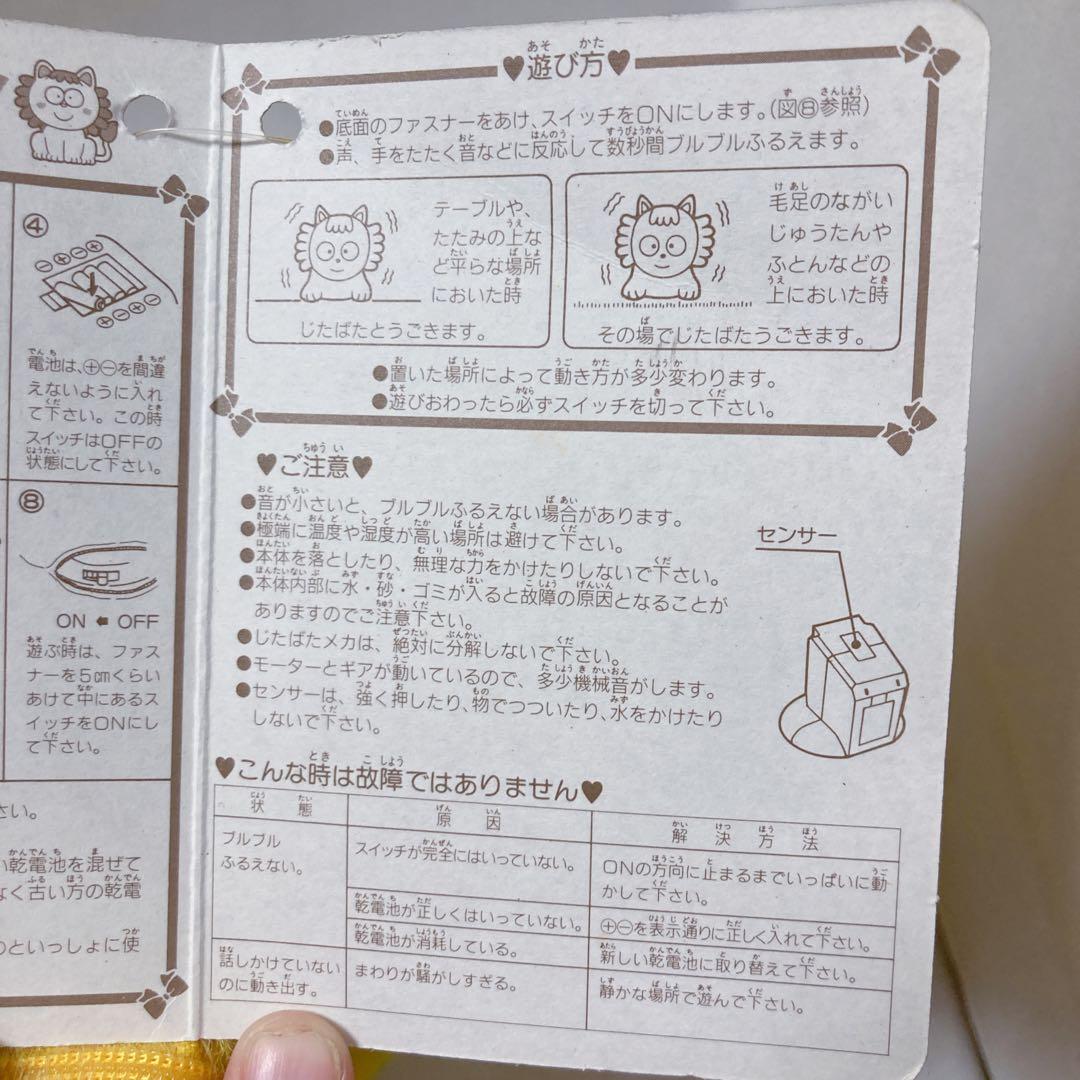 ④
電池は、⊕⊖を間違
えないように入れ
て下さい。この時
スイッチはOFFの
状態にして下さい。
⑧
ON ← OFF
遊ぶ時は、ファス
ナーを5cmくらい
あけて中にあるス
イッチをONにし
て下さい。
さい。
い乾電池を混ぜて
なく古い方の乾電
のといっしょに使
♥遊び方♥
●底面のファスナーをあけ、スイッチをONにします。(図⑧参照)
●声、手をたたく音などに反応して数秒間ブルブルふるえます。
テーブルや、
たたみの上な
ど平らな場所
においた時
じたばたとうごきます。
毛足のながい
じゅうたんや
ふとんなどの
上においた時
その場でじたばたうごきます。
●置いた場所によって動き方が多少変わります。
●遊びおわったら必ずスイッチを切って下さい。
♥ご注意♥
●音が小さいと、ブルブルふるえない場合があります。
●極端に温度や湿度が高い場所は避けて下さい。
●本体を落としたり、無理な力をかけたりしないで下さい。
●本体内部に水・砂・ゴミが入ると故障の原因となることが
ありますのでご注意下さい。
●じたばたメカは、絶対に分解しないで下さい。
●モーターとギアが動いているので、多少機械音がします。
●センサーは、強く押したり、物でつついたり、水をかけたり
しないで下さい。
センサー
♥こんな時は故障ではありません♥
状態 原因 解決方法
ブルブル
ふるえない。
スイッチが完全にはいっていない。
ONの方向に止まるまでいっぱいに動
かして下さい。
乾電池が正しくはいっていない。
⊕⊖を表示通りに正しく入れて下さい。
乾電池が消耗している。
新しい乾電池に取り替えて下さい。
話しかけていない
のに動き出す。
まわりが騒がしすぎる。
静かな場所で遊んで下さい。